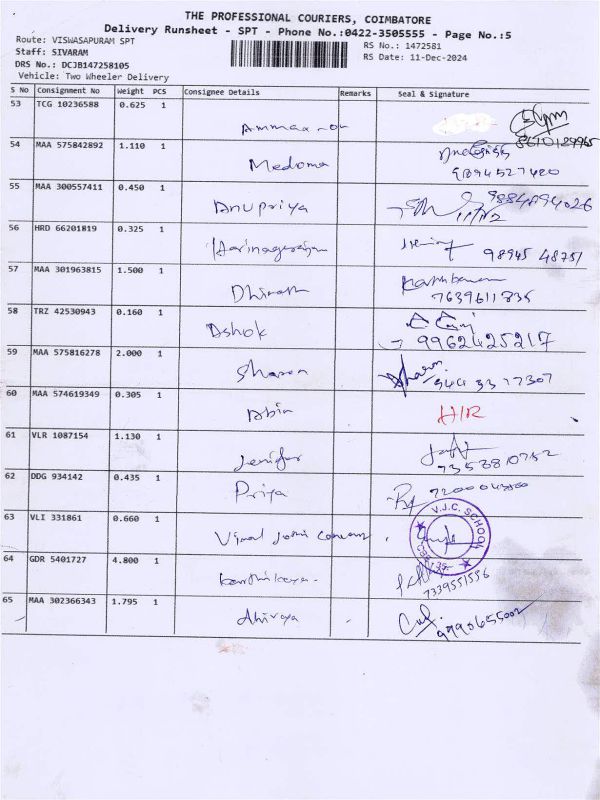 THE PROFESSIONAL COURIERS, COIMBATORE
Delivery Runsheet - SPT - Phone No.:0422-3505555 - Page No.:5
Route: VISWASAPURAM SPT
RS No.: 1472581
Staff: SIVARAM
RS Date: 11-Dec-2024
DRS No.: DCJB147258105
Vehicle: Two Wheeler Delivery
S No Consignment No Weight PCS Consignee Details Remarks Seal & Signature
53 TCG 10236588 0.625 1
54 MAA 575842892 1.110 1
8610129965
Medoma
9894527420
55 MAA 300557411 0.450 1
Anupriya 9884894026
56 HRD 66201819 0.325 1
98945 48751
57 MAA 301963815 1.500 1
7639611835
58 TRZ 42530943 0.160 1
Ashok
9962425217
59 MAA 575816278 2.000 1
Sharon
60 MAA 574619349 0.305 1
Abin H/R
61 VLR 1087154 1.130 1
Jenifer
7358810752
62 DDG 934142 0.435 1
Priya
63 VLI 331861 0.660 1
V.J.C. SCHOOL
64 GDR 5401727 4.800 1
7339551556
65 MAA 302366343 1.795 1
9990655002